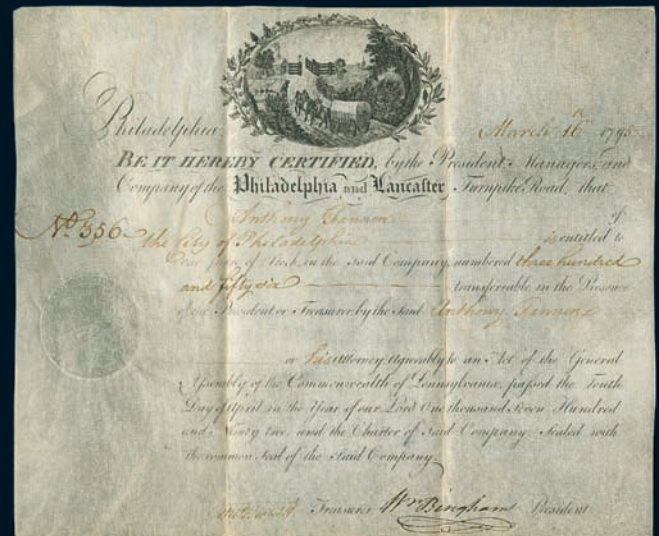 Philadelphia March 16th 1795
BE IT HEREBY CERTIFIED, by the President Managers and
Company of the Philadelphia and Lancaster Turnpike Road, that
Anthony of
No. 356 the City of Philadelphia is entitled to
One Share of Stock, in the said Company, numbered three hundred
and fifty six transferable in the Presence
of the President or Treasurer, by the said Anthony
or his Attorney, Agreeably to an Act of the General
Assembly of the Commonwealth of Pennsylvania, passed the Tenth
Day of April in the Year of our Lord One thousand Seven Hundred
and Ninety two, and the Charter of said Company. Sealed with
the common Seal of the said Company.
Treasurer Wm Bingham President